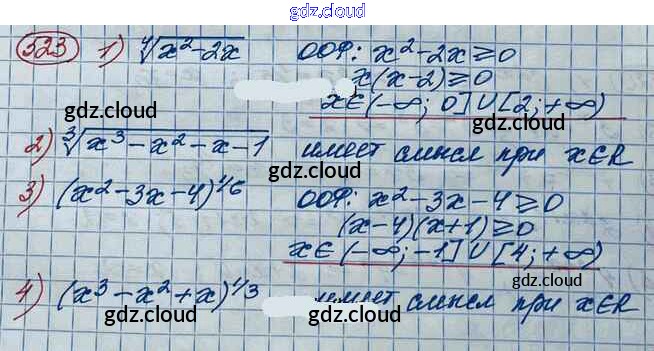 gdz.cloud
gdz.cloud
323 1) ⁴√(x²-2x) ООФ: x²-2x≥0
x(x-2)≥0
gdz.cloud gdz.cloud
x∈(-∞; 0]∪[2;+∞)
gdz.cloud
2) ³√(x³-x²-x-1) имеет смысл при x∈R
gdz.cloud
3) (x²-3x-4)^1/6 ООФ: x²-3x-4≥0
gdz.cloud
(x-4)(x+1)≥0
x∈(-∞;-1]∪[4;+∞)
gdz.cloud
4) (x³-x²+x)^1/3 имеет смысл при x∈R
gdz.cloud gdz.cloud